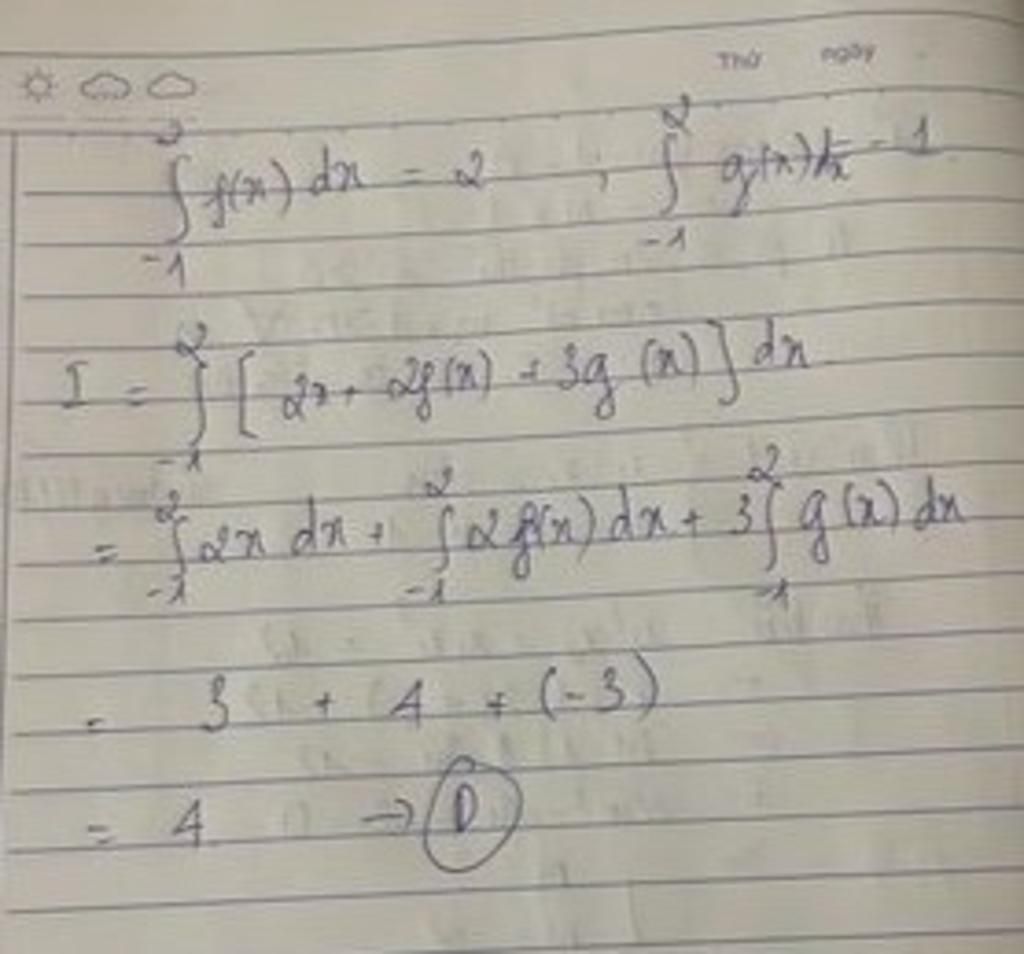 Thứ ngày
∫_{-1}^{2} f(x) dx = 2 , ∫_{-1}^{2} g(x) dx = -1
I = ∫_{-1}^{2} [ 2x + 2f(x) + 3g (x) ] dx
= ∫_{-1}^{2} 2x dx + ∫_{-1}^{2} 2f(x) dx + 3∫_{-1}^{2} g (x) dx
= 3 + 4 + (-3)
= 4 → D